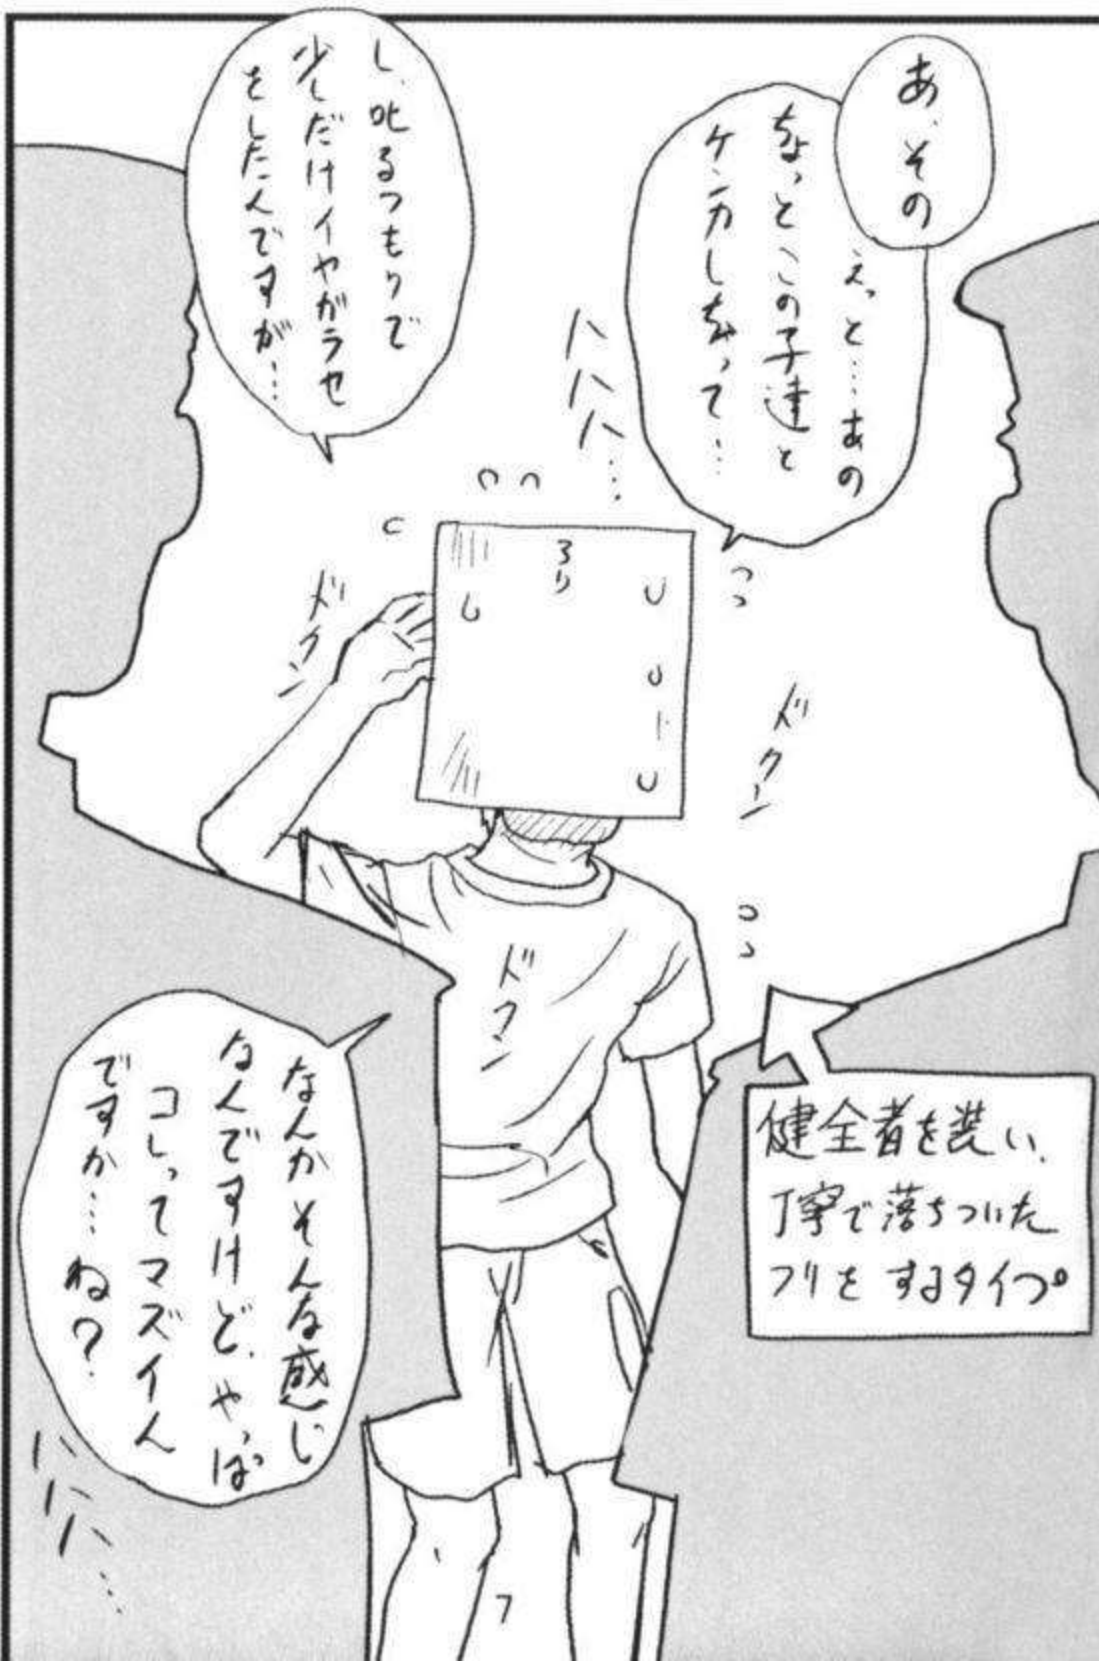 あ、その
えっと…あの
ちょっとこの子達と
ケンカしちゃって…
ハハハ…
し、叱るつもりで
少しだけイヤガラセ
をしたんですが…
ドクン
ドクン
ドクン
健全者を装い、
丁寧で落ちついた
フリをするタイプ。
なんかそんな感じ
なんですけど、やっぱ
コレってマズイん
ですか…ね?
ハハハ…
7